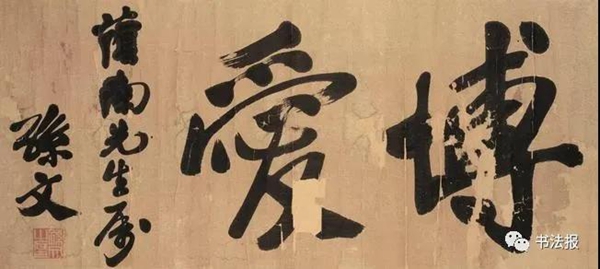 博愛
蔭南先生属
孫文
书法报